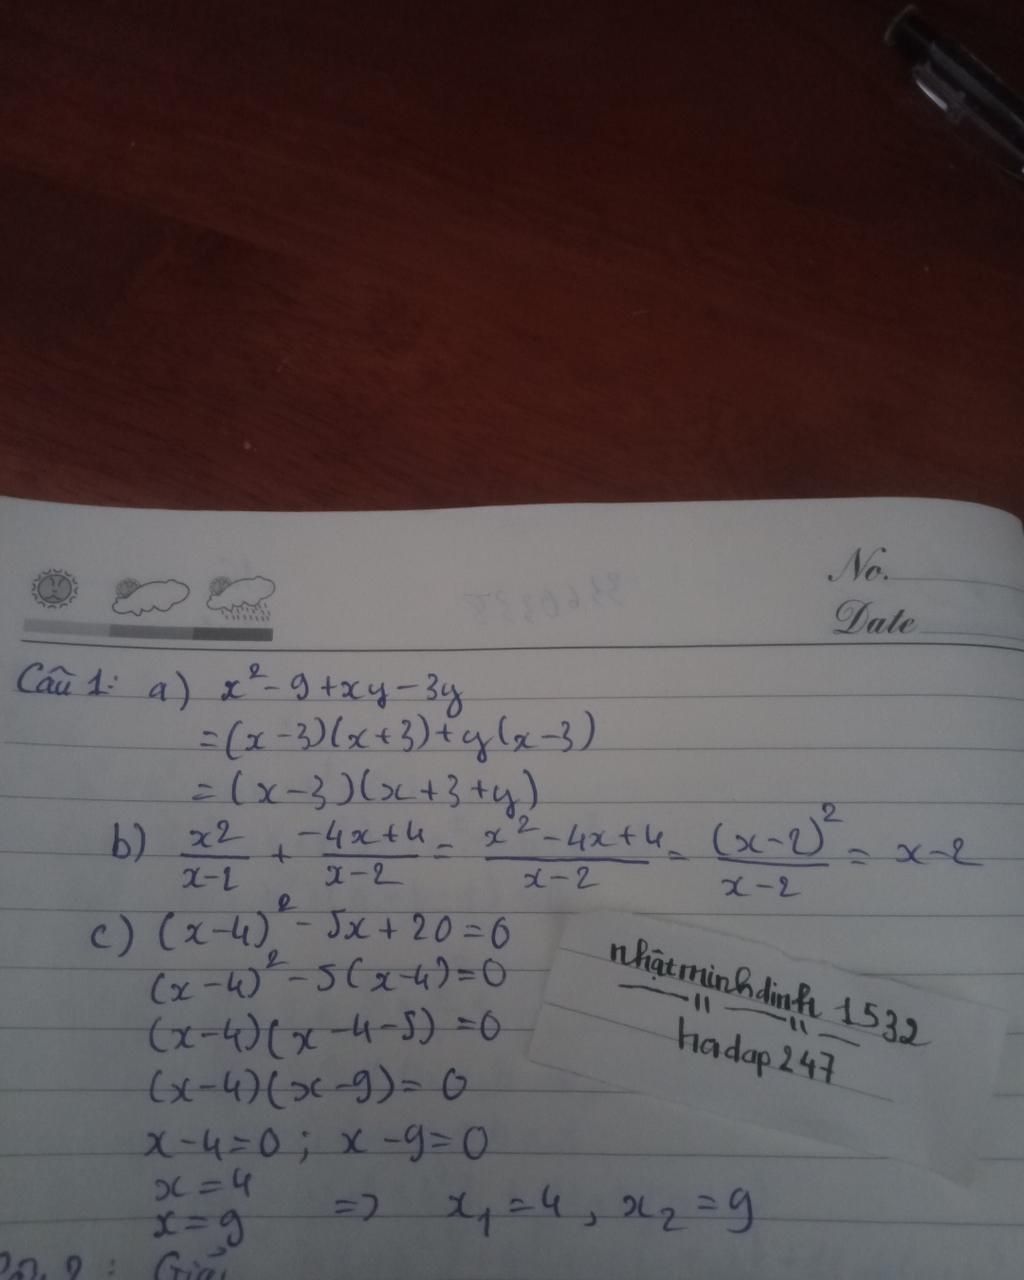 No.
Date
Câu 1: a) x² - 9 + xy - 3y
= (x - 3)(x + 3) + y(x - 3)
= (x - 3)(x + 3 + y)
b) x2/x-2 + -4x+4/x-2 = x²-4x+4/x-2 = (x-2)²/x-2 = x-2
c) (x-4)² - 5x + 20 = 0
(x-4)² - 5(x-4) = 0
(x-4)(x-4-5) = 0
(x-4)(x-9) = 0
x-4=0 ; x-9=0
x=4
x=9 => x₁=4, x₂=9
nhậtminhdinh 1532
hadap 247
: Giải